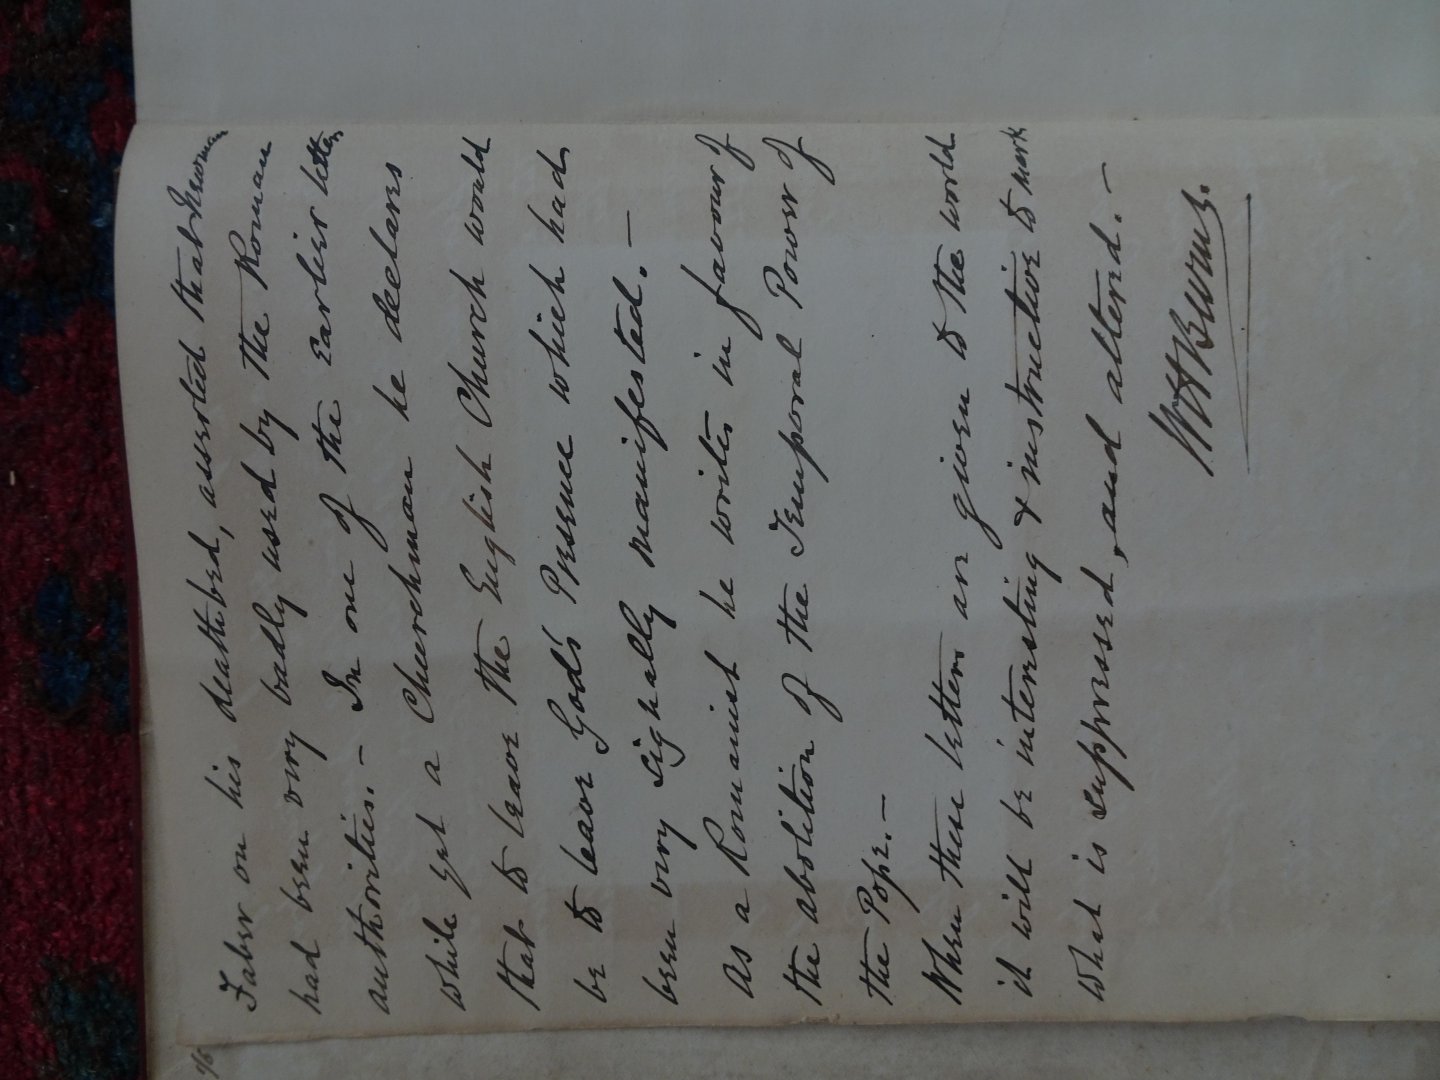 Faber on his deathbed, asserted that Newman
had been very badly used by the Roman
authorities. – In one of the Earlier letters
while yet a Churchman he declares
that to leave the English Church would
be to leave God's Presence which had
been very signally manifested. –
As a Romanist he writes in favour of
the abolition of the Temporal Power of
the Pope. –
When these letters are given to the world
it will be interesting & instructive to mark
what is suppressed, and altered. –